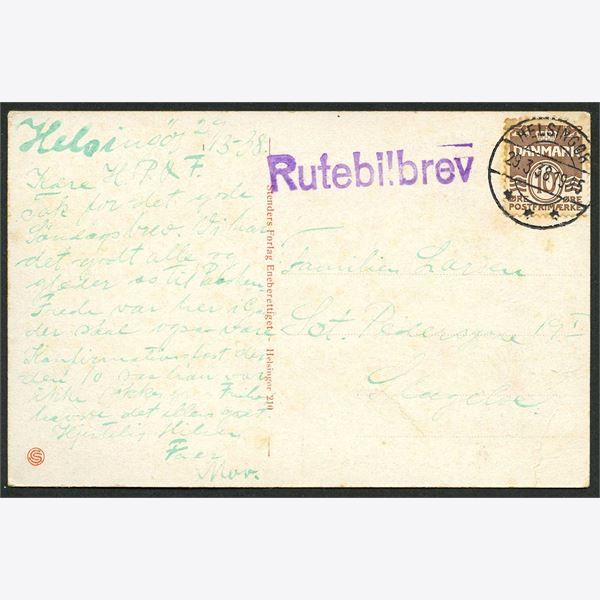 Helsingör 29/3-38.
Kære H. P. & F.
Tak for det gode
Søndagsbrev. Vi har
det godt alle og
glæder os til Påsken
Frede var her i Gaar
der skal ogsaa være
Konfirmationsfest der
den 10 saa han var
ikke
det ellers godt
Hjertelig Hilsen
Faer
Mor.
Stenders Forlag Eneberettiget - Helsingør 210
Rutebilbrev
HELSINGØR
DANMARK
10
ØRE ØRE
POSTFRIMÆRKE
Familien Larsen
Sct. Pedersgade 19 I
Slagelse